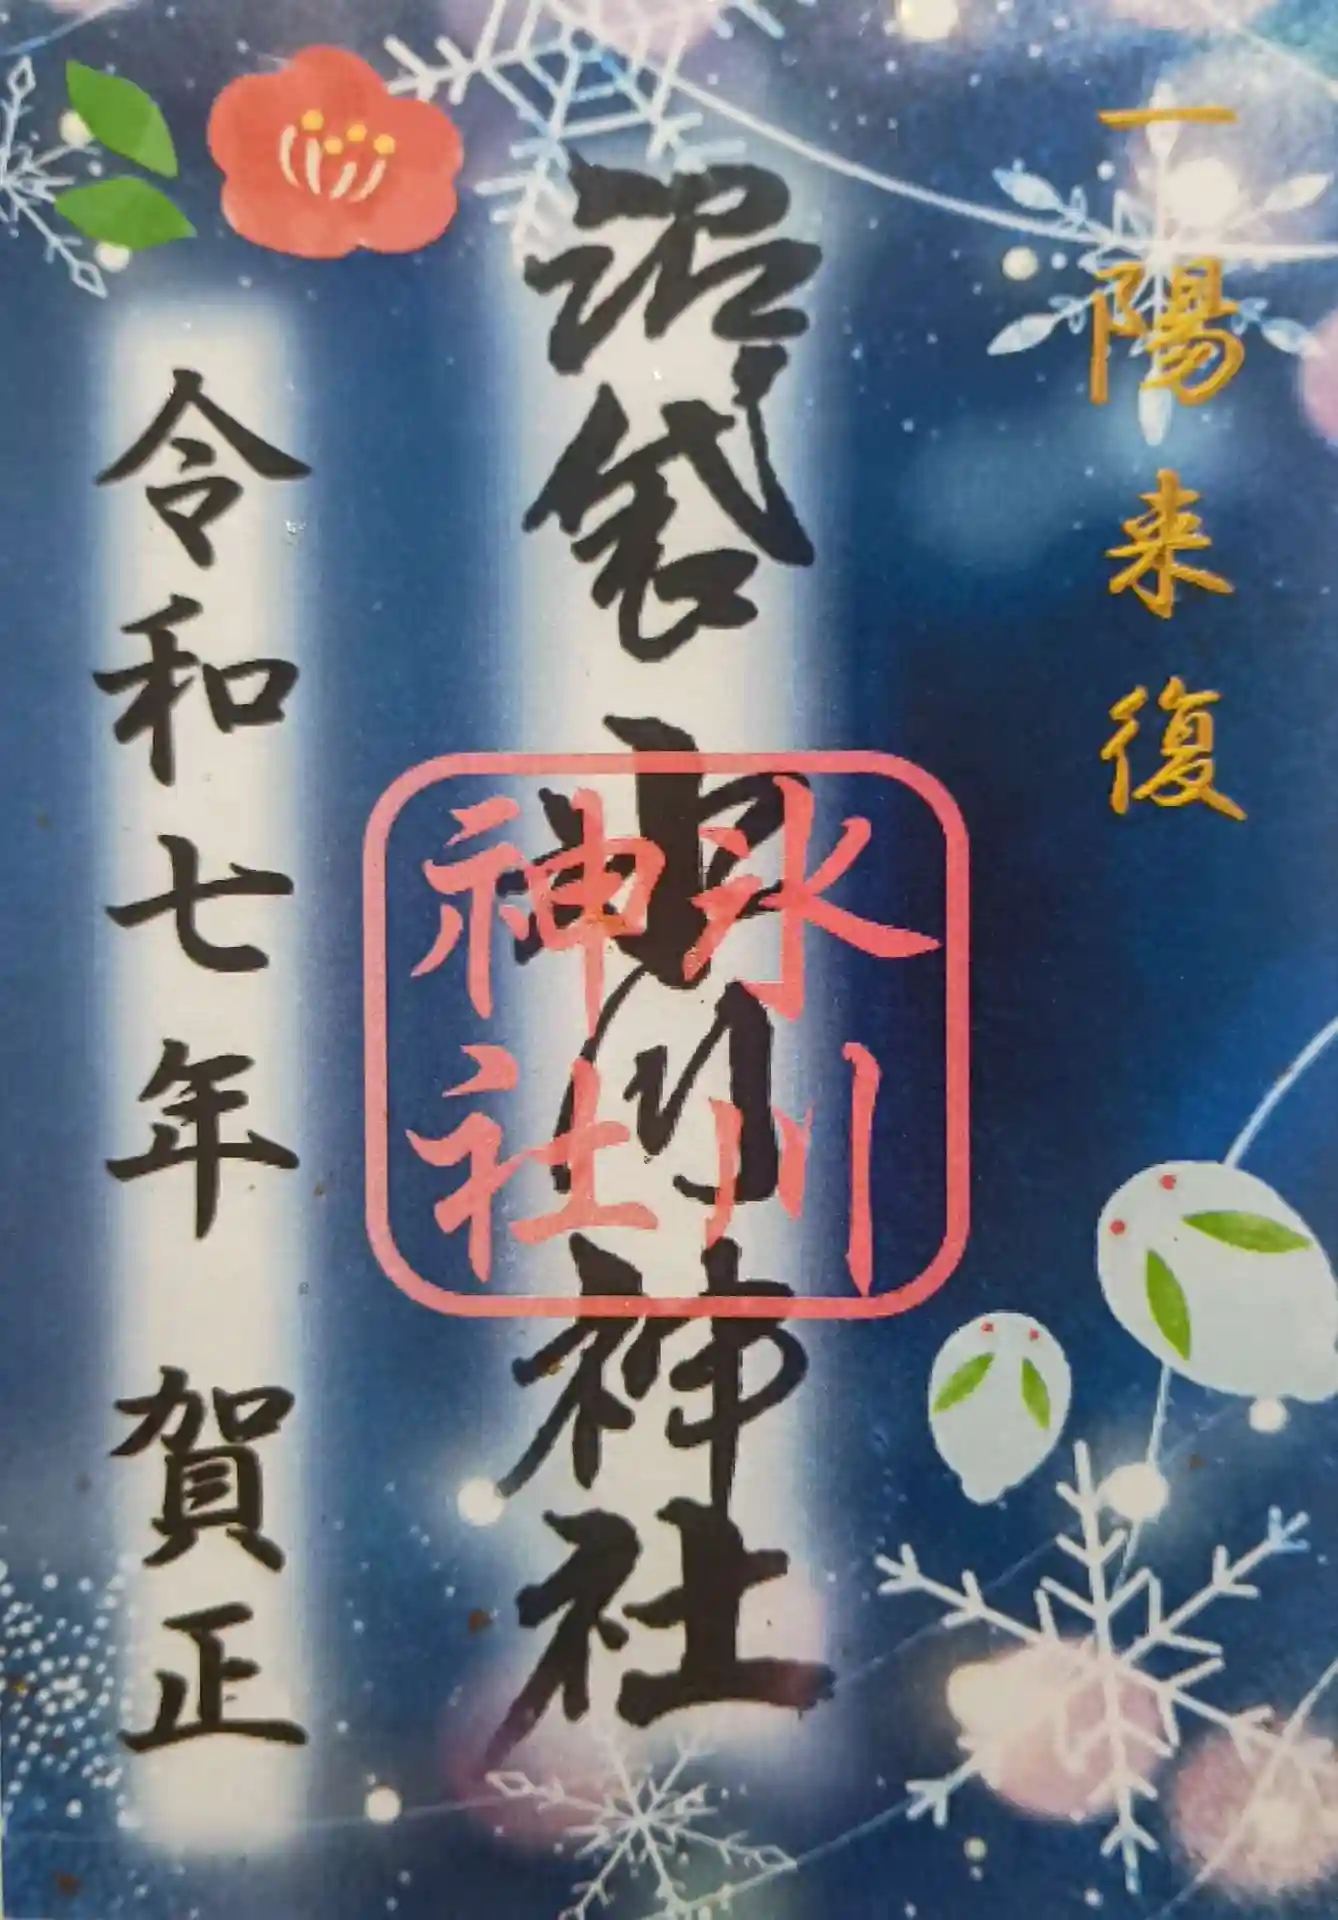 一陽来復
沼袋氷川神社
氷川
神社
令和七年 賀正